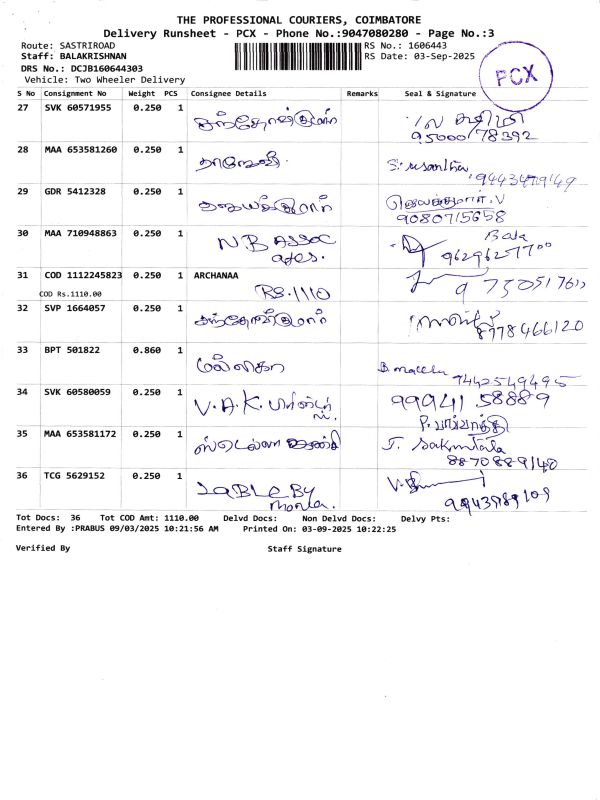 THE PROFESSIONAL COURIERS, COIMBATORE
Delivery Runsheet - PCX - Phone No.:9047080280 - Page No.:3
Route: SASTRIROAD
RS No.: 1606443
Staff: BALAKRISHNAN
RS Date: 03-Sep-2025
DRS No.: DCJB160644303
Vehicle: Two Wheeler Delivery
PCX
S No Consignment No Weight PCS Consignee Details Remarks Seal & Signature
27 SVK 60571955 0.250 1 சந்தோஷ்குமார்
95000/78392
28 MAA 653581260 0.250 1
9443479149
29 GDR 5412328 0.250 1
9080715658
30 MAA 710948863 0.250 1 N.B ASSOC Bala
ates. 9629627700
31 COD 1112245823 0.250 1 ARCHANAA
COD Rs.1110.00 RS.1110
32 SVP 1664057 0.250 1 சந்தோஷ்குமார்
8778466120
33 BPT 501822 0.860 1
7442549495
34 SVK 60580059 0.250 1 V.A.K. 99941 58889
35 MAA 653581172 0.250 1 ஸ்டெல்லா
8870889140
36 TCG 5629152 0.250 1 LaBLe By
Tot Docs: 36 Tot COD Amt: 1110.00 Delvd Docs: Non Delvd Docs: Delvy Pts:
Entered By :PRABUS 09/03/2025 10:21:56 AM Printed On: 03-09-2025 10:22:25
Verified By Staff Signature